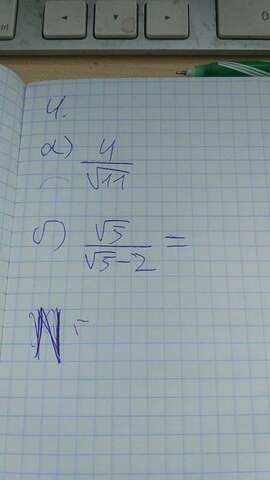 4.
а) 4/√11
б) √5/(√5-2) =